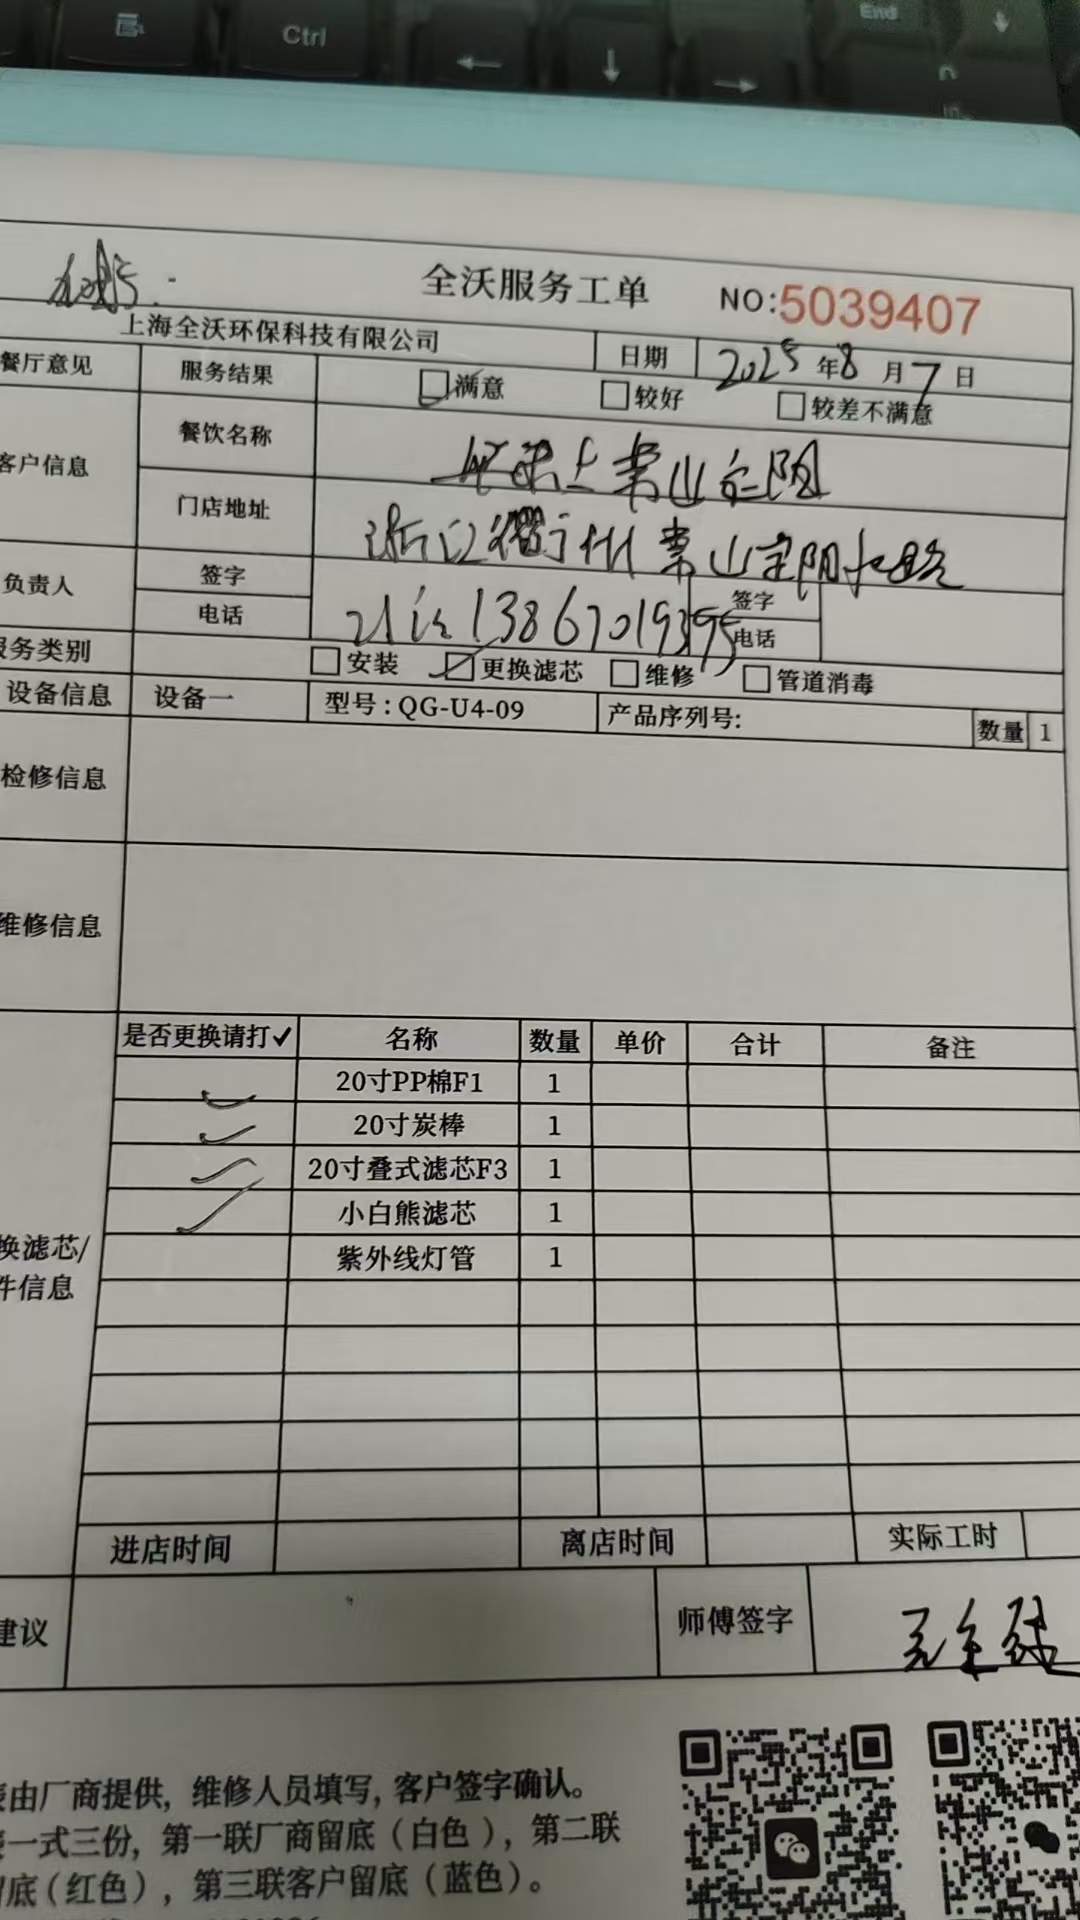 End
Ctrl
全沃服务工单 NO:5039407
上海全沃环保科技有限公司 日期 2025年8月7日
餐厅意见 服务结果 满意 较好 较差不满意
客户信息 餐饮名称 常山定阳
门店地址 浙江衢州常山定阳北路
负责人 签字 签字
电话 13867019395 电话
服务类别 安装 更换滤芯 维修 管道消毒
设备信息 设备一 型号:QG-U4-09 产品序列号: 数量 1
检修信息
维修信息
是否更换请打✓ 名称 数量 单价 合计 备注
✓ 20寸PP棉F1 1
✓ 20寸炭棒 1
✓ 20寸叠式滤芯F3 1
✓ 小白熊滤芯 1
紫外线灯管 1
换滤芯/
件信息
进店时间 离店时间 实际工时
建议 师傅签字
由厂商提供,维修人员填写,客户签字确认。
一式三份,第一联厂商留底(白色),第二联
底(红色),第三联客户留底(蓝色)。